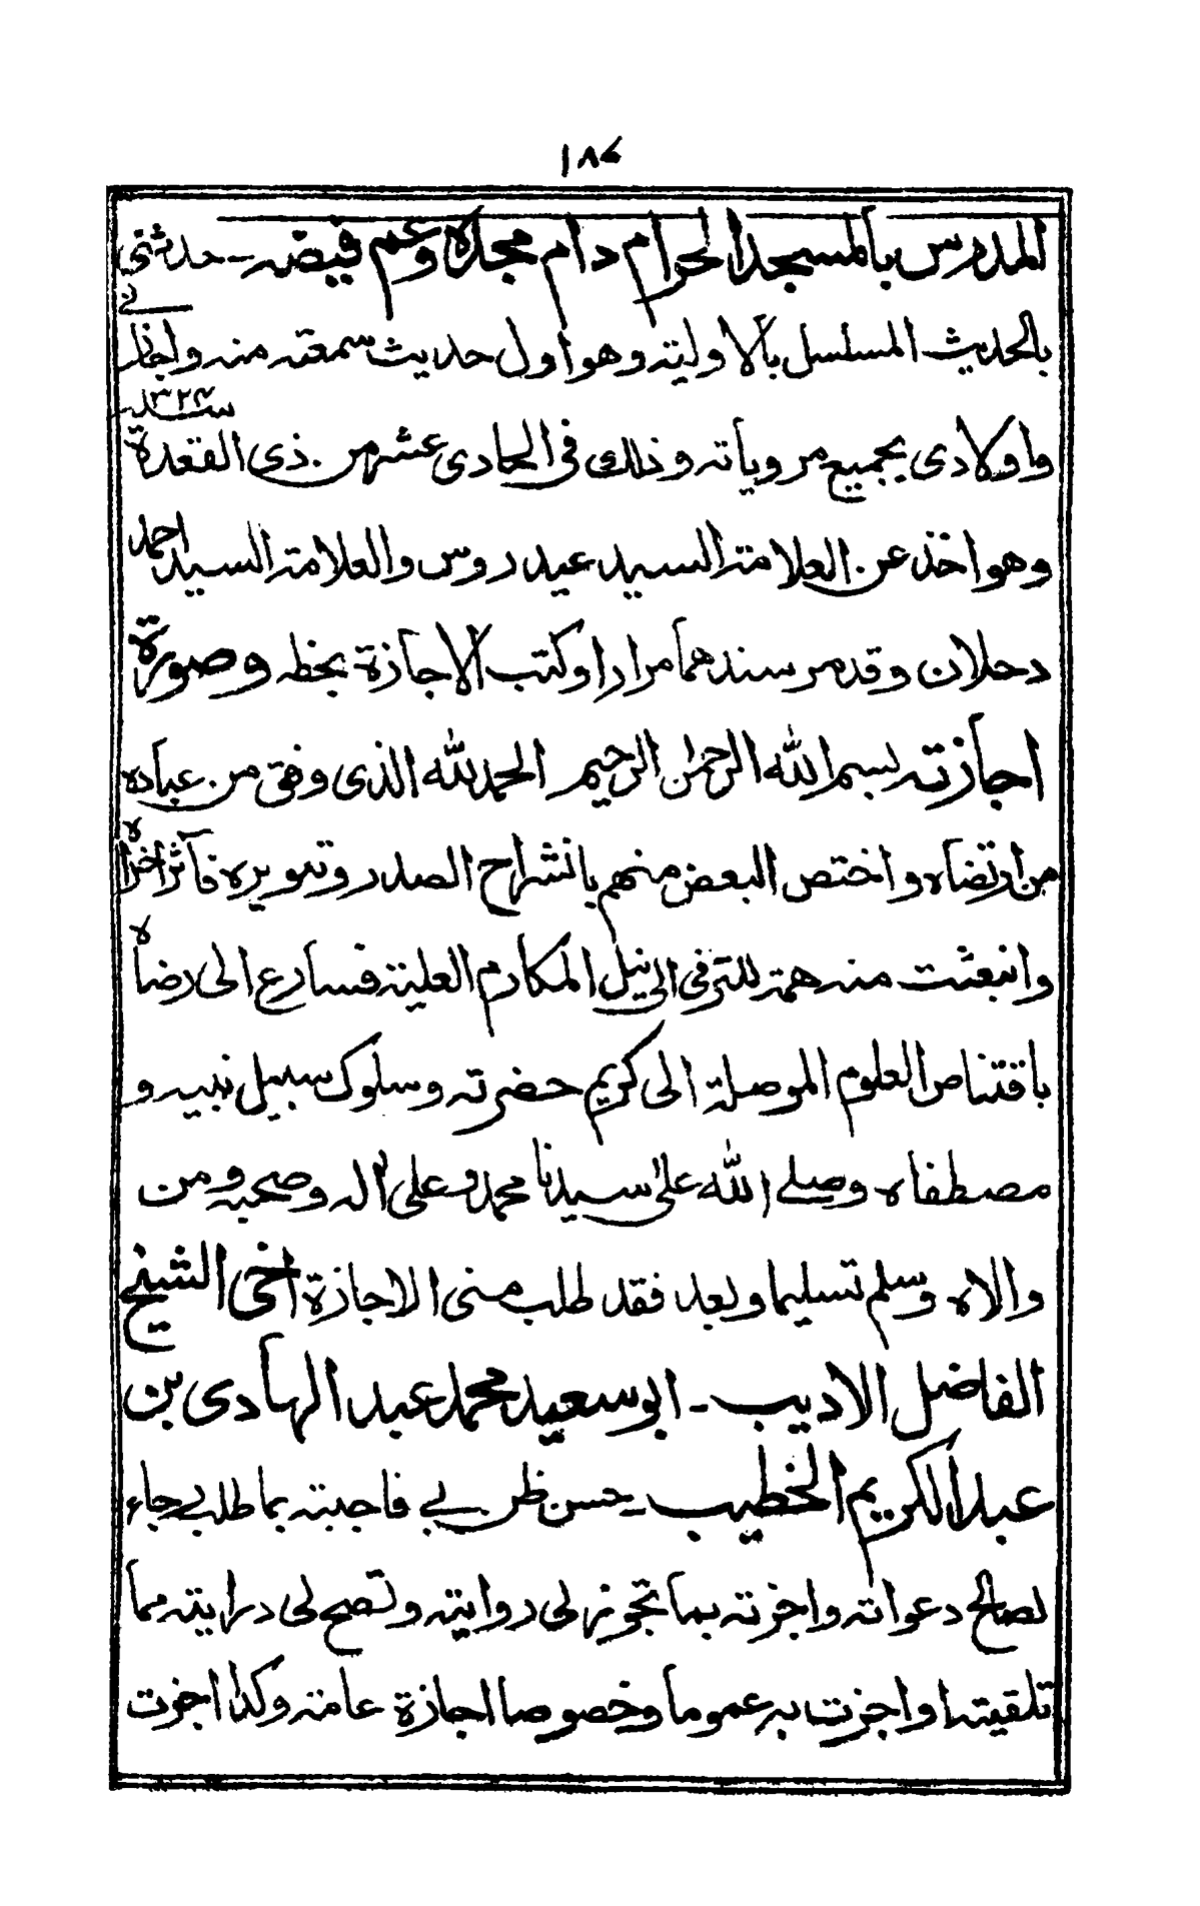 ١٨٤
المدرس بالمسجد الحرام دام مجده وعم فيضه - حدثني
بالحديث المسلسل بالاوليته وهو اول حديث سمعته منه واجازني
واولادي بجميع مروياته وذلك فى الحادى عشر من ذى القعدة سنة ١٣٢٤
وهو اخذ عن العلامة السيد عيدروس والعلامة السيد احمد
دحلان وقد مر سندهما مرارا وكتب الاجازة بخطه وصورة
اجازته بسم الله الرحمن الرحيم الحمد لله الذى وفق من عباده
من ارتضاه واختص البعض منهم بانشراح الصدر وتنويره فآثر اخراه
وانبعثت منه همة للترقى الى نيل المكارم العلية فسارع الى رضاه
باقتناص العلوم الموصلة الى كريم حضرته وسلوك سبيل نبيه و
مصطفاه وصلى الله على سيدنا محمد وعلى اله وصحبه ومن
والاه وسلم تسليما وبعد فقد طلب منى الاجازة اخى الشيخ
الفاضل الاديب - ابو سعيد محمد عبد الهادى بن
عبد الكريم الخطيب - حسن ظن بي فاجبته بما طلب رجاء
لصالح دعواته واجزته بما تجوز لى روايته وتصح لى درايته مما
تلقيته او اجزت به عموما وخصوصا اجازة عامة وكذا اجزت